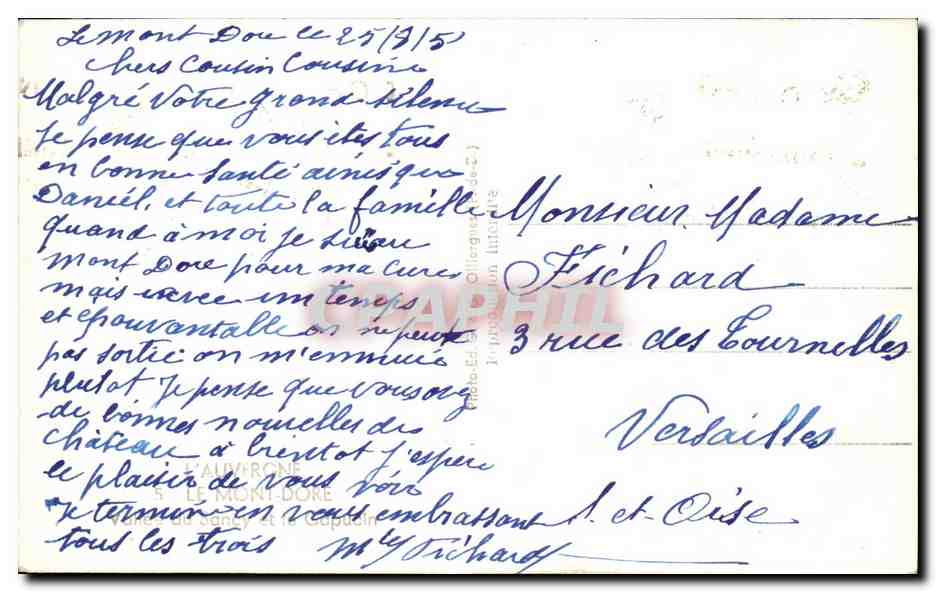 Le Mont Dore le 25/8/5
chers Cousin Cousine
Malgré votre grand silence
Je pense que vous êtes tous
en bonne santé ainsi que
Daniel, et toute la famille
quand à moi je suis au
Mont Dore pour ma cure
mais avec un temps
et épouvantable on ne peut
pas sortir on m'ennuie
plutot Je pense que vous avez
de bonnes nouvelles du
château à bientot j'espère
le plaisir de vous voir
Je termine en vous embrassant
tous les trois
Monsieur Madame
Fichard
3 rue des Tournelles
Versailles
S. et. Oise
Photo-Ed. Olliergues (P.-de-D.)
Reproduction Interdite
CPAPHIL
L'AUVERGNE
5 LE MONT-DORE
Vallée du Sancy et le Capucin